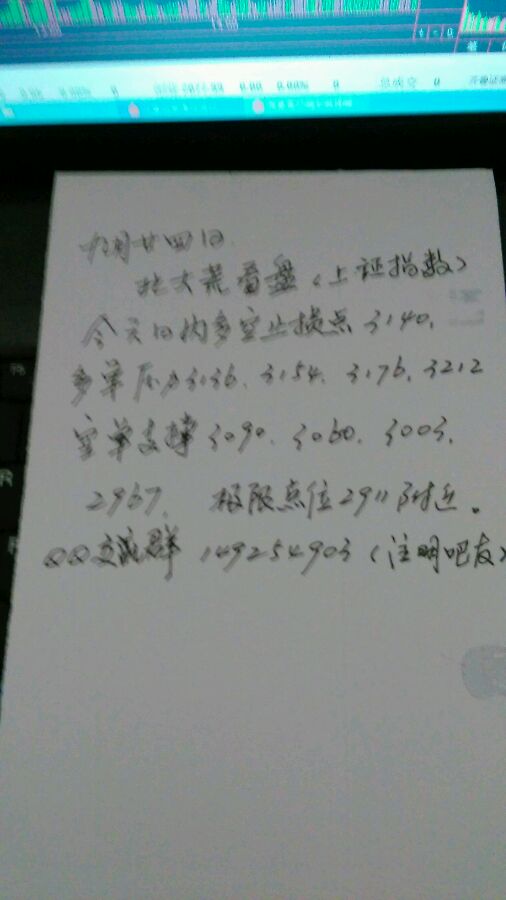 九月廿四日
北大荒看盘（上证指数）
今天日内多空止损点3140，
多单压力3136、3154、3176、3212
空单支撑3090、3060、3003、
2967、极限点位2911附近。
QQ交流群 149254903（注明吧友）